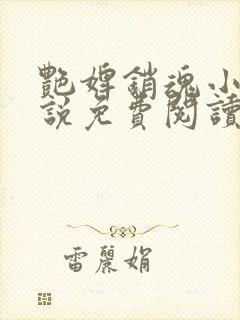 艷婢銷魂小
說免費閱讀
雷麗娟